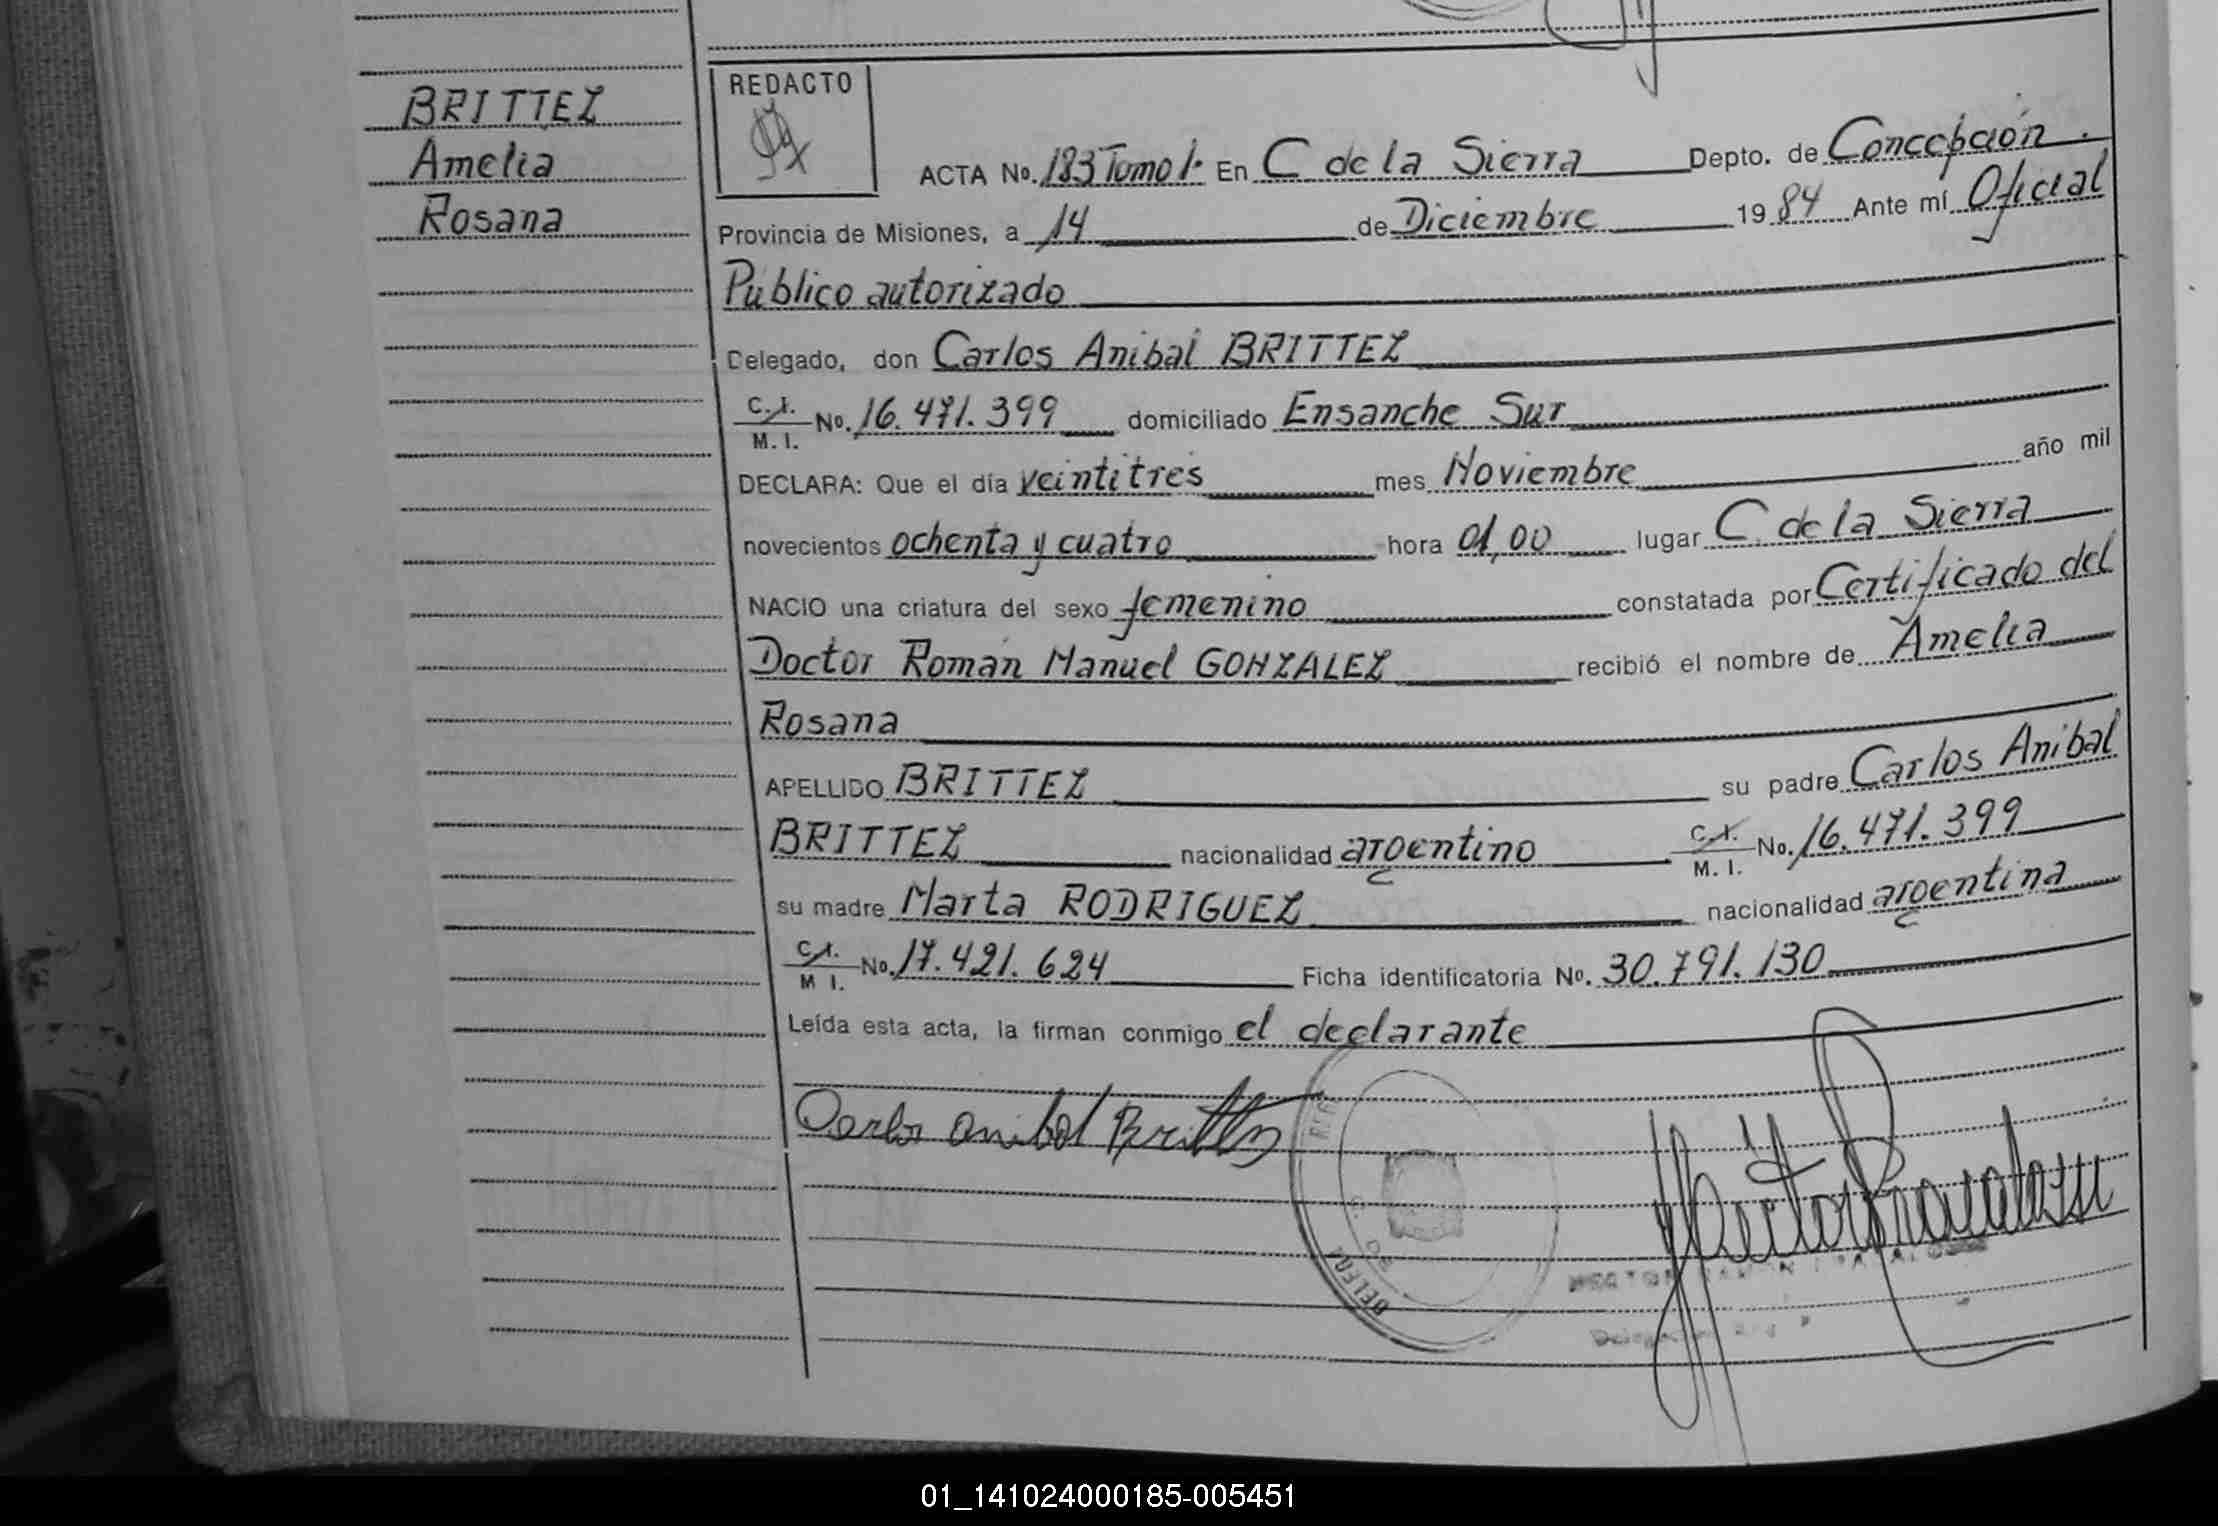 BRITTEZ
Amelia
Rosana
REDACTO
ACTA No. 183 Tomo I. En C de la Sierra Depto. de Concepción.
Provincia de Misiones, a 14 de Diciembre 1984 Ante mí Oficial
Público autorizado
Delegado, don Carlos Anibal BRITTEZ
C.I. M.I. No. 16.471.399 domiciliado Ensanche Sur
DECLARA: Que el día veintitrés mes Noviembre año mil
novecientos ochenta y cuatro hora 01,00 lugar C. de la Sierra
NACIO una criatura del sexo femenino constatada por Certificado del
Doctor Román Manuel GONZALEZ recibió el nombre de Amelia
Rosana
APELLIDO BRITTEZ su padre Carlos Anibal
BRITTEZ nacionalidad argentino C.I. M.I. No. 16.471.399
su madre Marta RODRIGUEZ nacionalidad argentina
C.I. M I. No. 17.421.624 Ficha identificatoria No. 30.791.130
Leída esta acta, la firman conmigo el declarante
Carlos Anibal Brittez
01_141024000185-005451